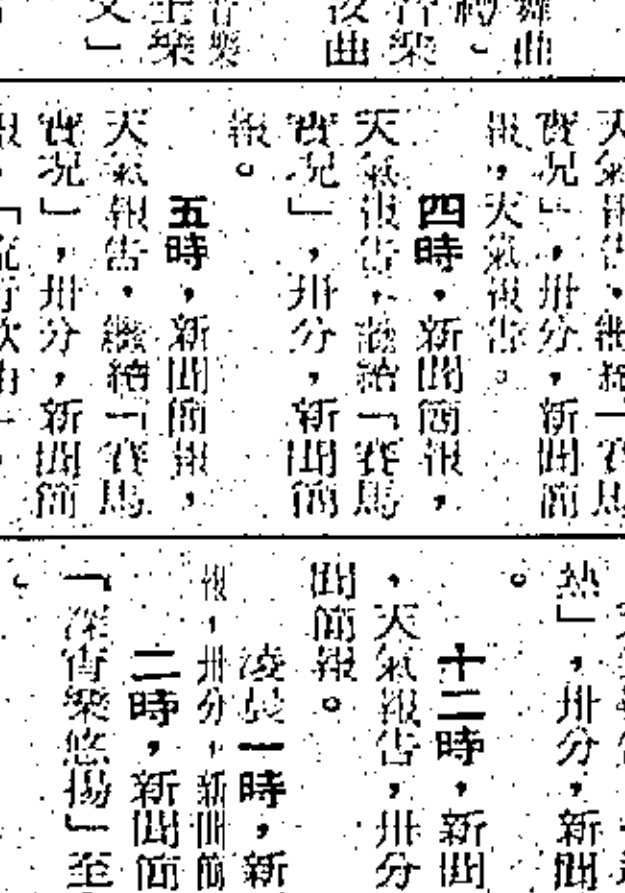 舞曲
。
音樂
夜曲
音樂
主樂
文」
天氣報告,繼續「賽馬
實況」,卅分,新聞簡
報,天氣報告。
四時,新聞簡報,
天氣報告,繼續「賽馬
實況」,卅分,新聞簡
報。
五時,新聞簡報,
天氣報告,繼續「賽馬
實況」,卅分,新聞簡
報,「流行歌曲」。
熱」,卅分,新聞
。
十二時,新聞
,天氣報告,卅分
聞簡報。
凌晨一時,新
報,卅分,新聞簡
二時,新聞簡
「深宵樂悠揚」至
。